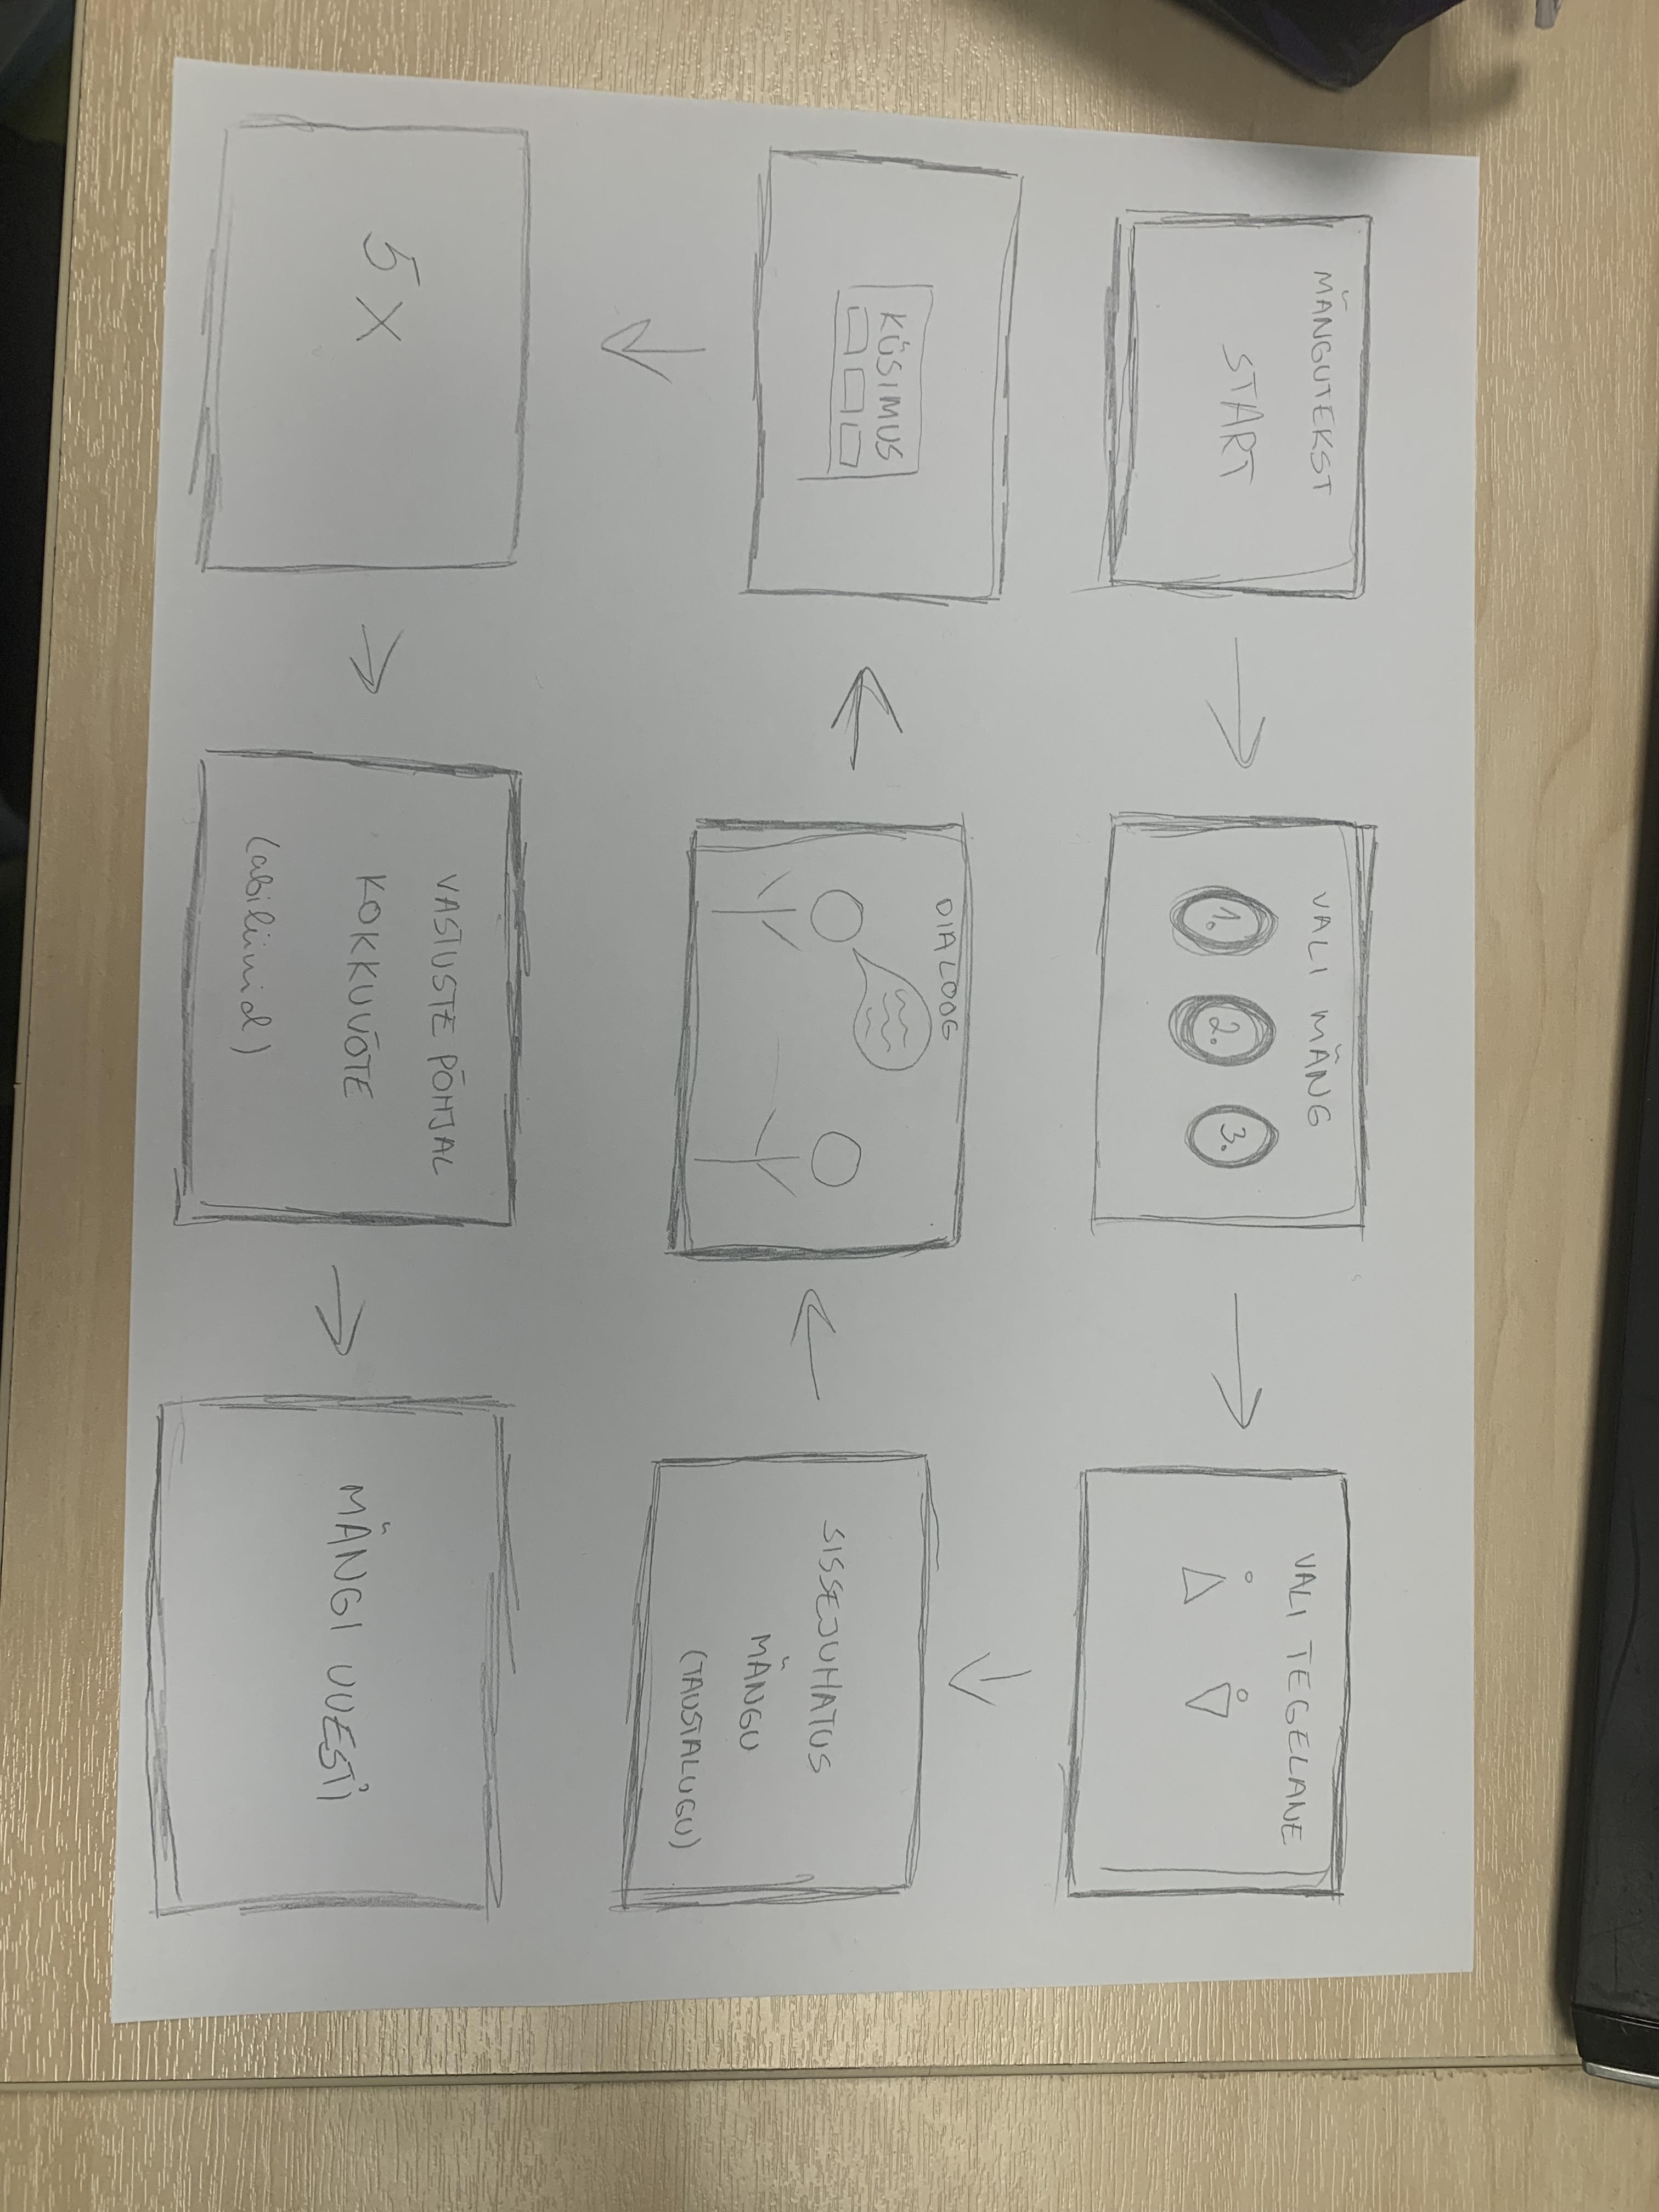 MÄNGUTEKST
START
VALI MÄNG
1. 2. 3.
VALI TEGELANE
SISSEJUHATUS
MÄNGU
(TAUSTALUGU)
DIALOOG
KÜSIMUS
5 X
VASTUSTE PÕHJAL
KOKKUVÕTE
(abiliinid)
MÄNGI UUESTI